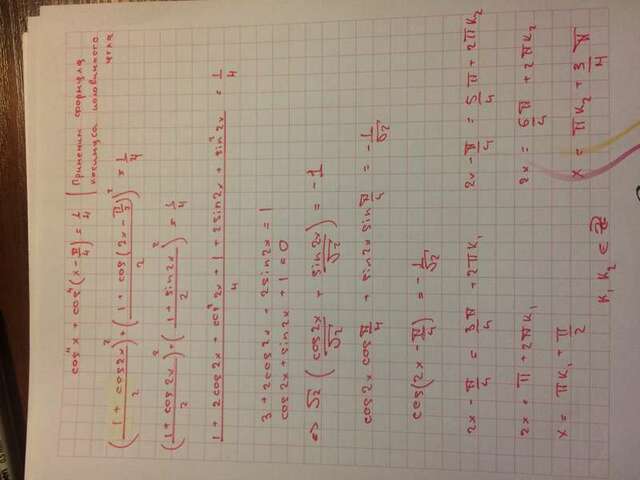 cos⁴x + cos⁴(x - π/4) = 1/4 | Применим формула
косинуса половинного
угла
((1 + cos2x)/2)² + ((1 + cos(2x - π/2))/2)² = 1/4
((1 + cos2x)/2)² + ((1 + sin2x)/2)² = 1/4
(1 + 2cos2x + cos²2x + 1 + 2sin2x + sin²2x)/4 = 1/4
3 + 2cos2x + 2sin2x = 1
cos2x + sin2x + 1 = 0
<=> √2 (cos2x/√2 + sin2x/√2) = -1
cos2x cos π/4 + sin2x sin π/4 = -1/√2
cos(2x - π/4) = -1/√2
2x - π/4 = 3/4 π + 2πk₁ 2x - π/4 = 5/4 π + 2πk₂
2x = π + 2πk₁ 2x = 6/4 π + 2πk₂
x = πk₁ + π/2 x = πk₂ + 3/4 π
k₁ k₂ ∈ ℤ